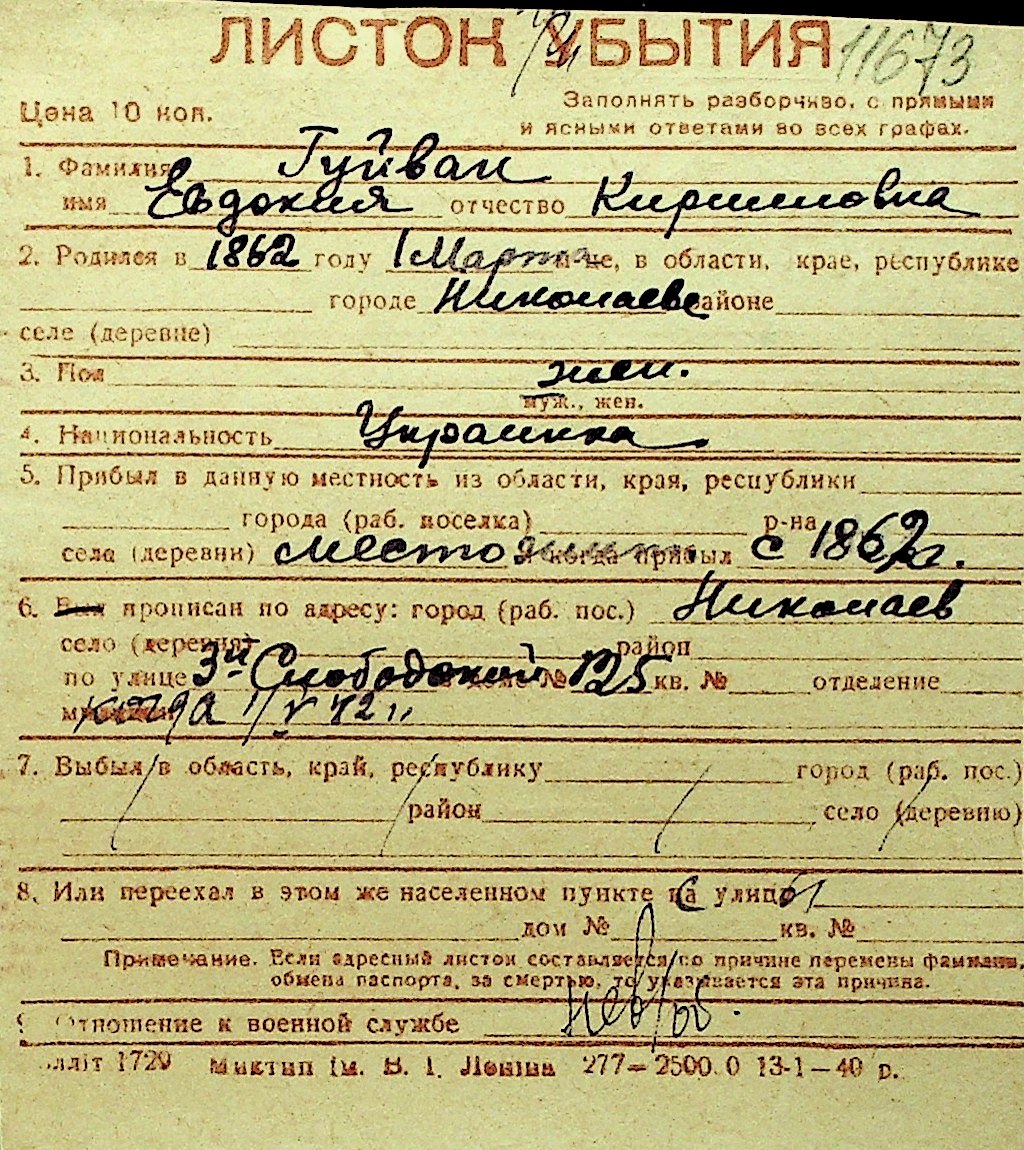 ЛИСТОК УБЫТИЯ 11673
Цена 10 коп.
Заполнять разборчиво, с прямыми
и ясными ответами во всех графах.
1. Фамилия Гуйван
имя Евдокия отчество Кирилловна
2. Родился в 1862 году 1 Марта м-це, в области, крае, республике
городе Николаеве районе
селе (деревне)
3. Пол жен.
муж., жен.
4. Национальность Украинка
5. Прибыл в данную местность из области, края, республики
города (раб. поселка) р-на
села (деревни) и когда прибыл с 1862 г.
6. Был прописан по адресу: город (раб. пос.) Николаев
село (деревня) район
по улице 3й Слободской доме № 125 кв. № отделение
когда 1/V 42 г.
7. Выбыл в область, край, республику город (раб. пос.)
район село (деревню)
8. Или переехал в этом же населенном пункте на улицу
дом № кв. №
Примечание. Если адресный листок составляется по причине перемены фамилии,
обмена паспорта, за смертью, то указывается эта причина.
9. Отношение к военной службе невооб.
Миктип ім. В. І. Леніна 277—2500.0 13-1—40 р.